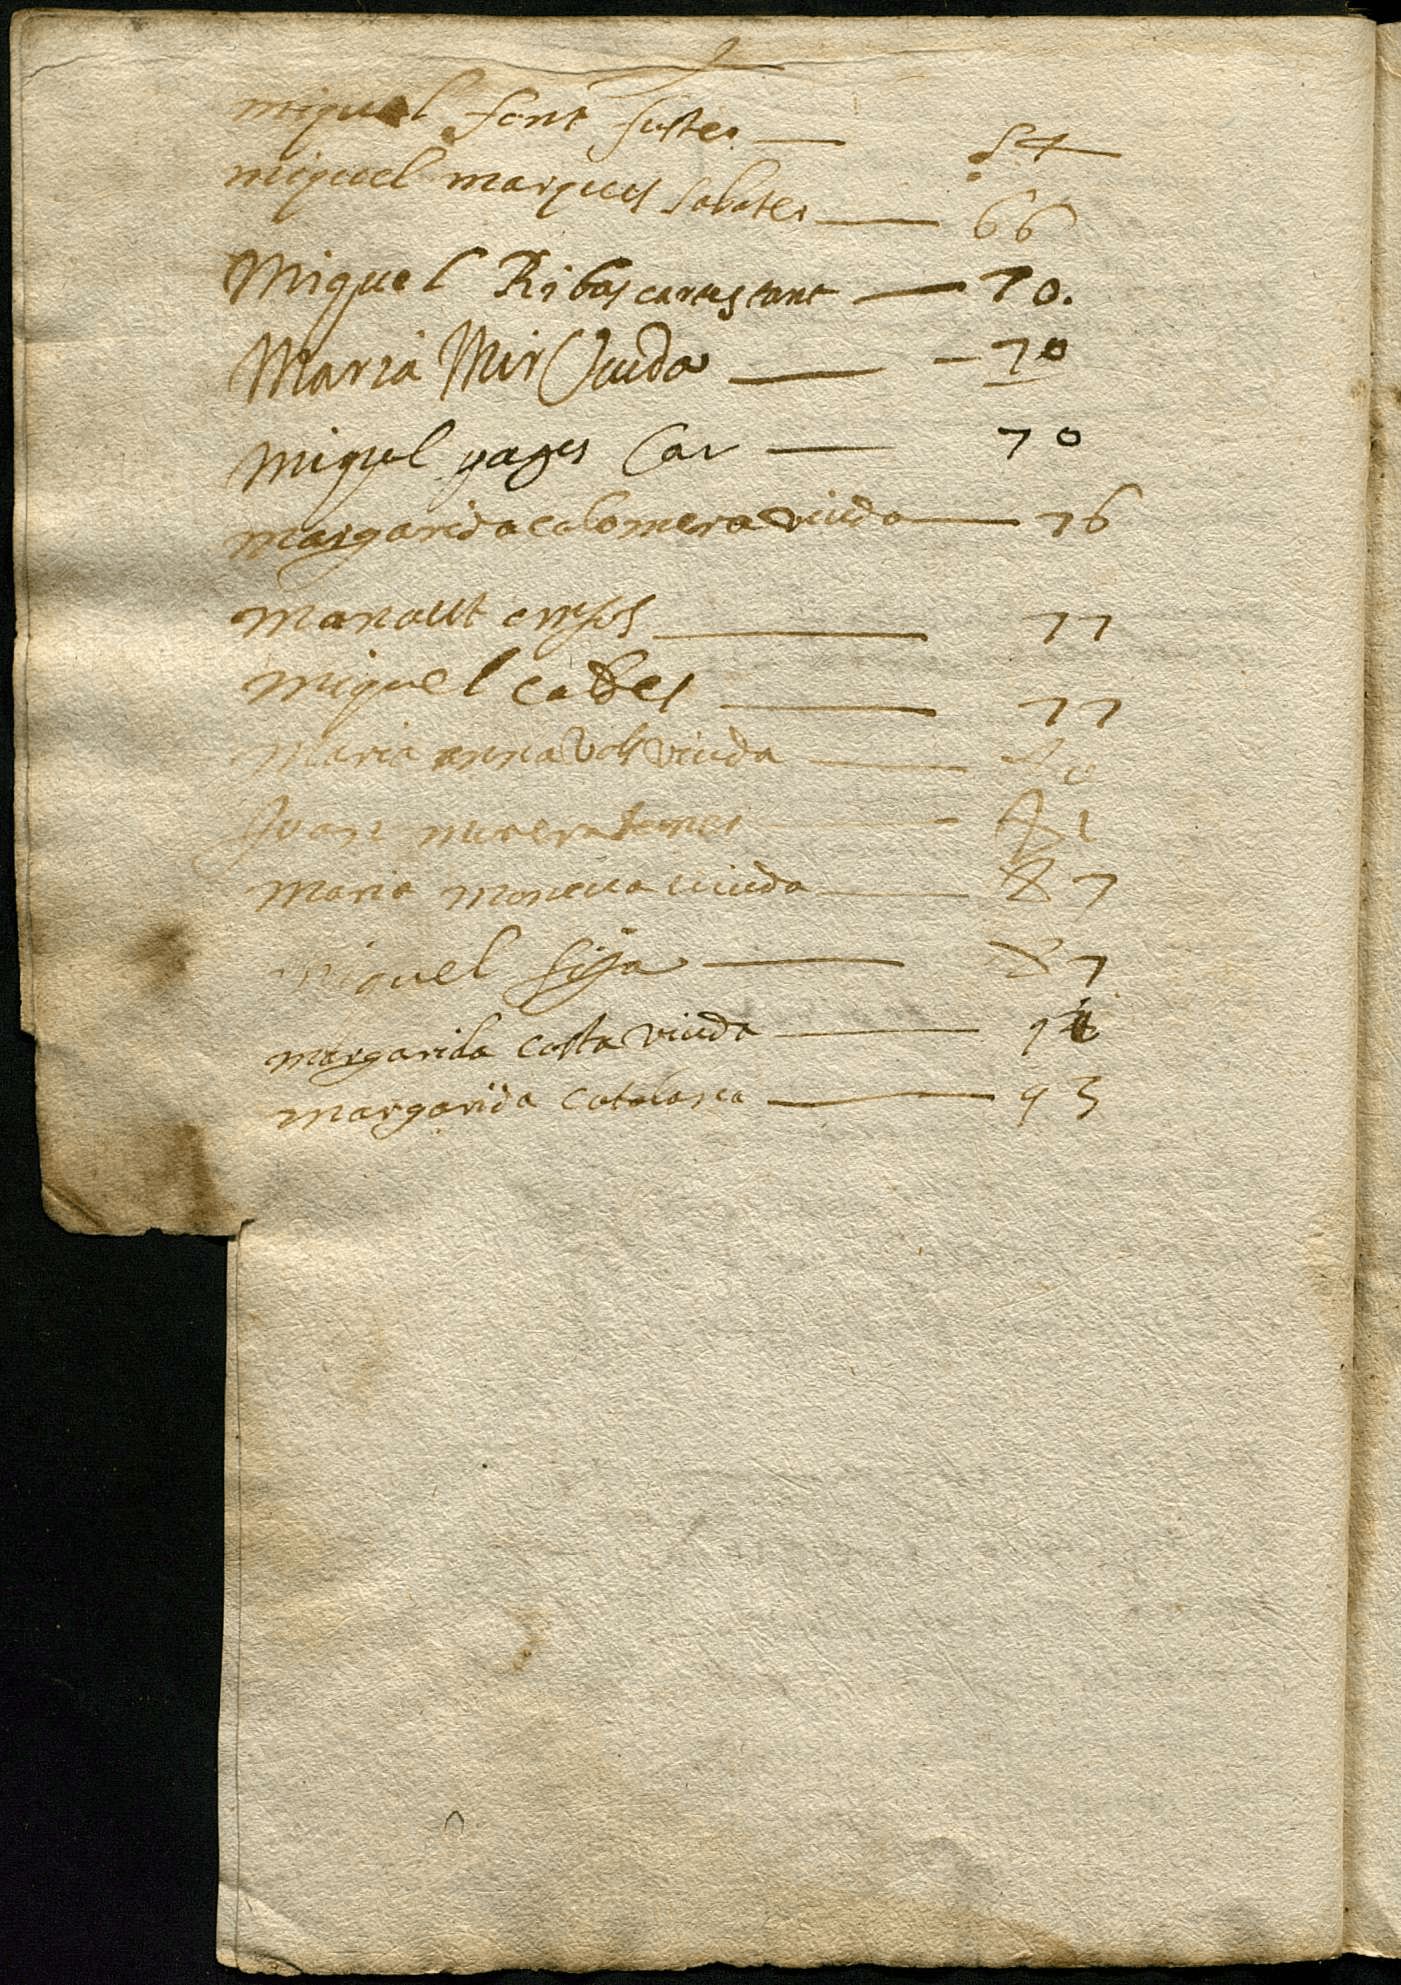 miquel font fuster — 54
miquel marques sabater — 66
Miquel Ribas — 70.
Maria Mir Viuda — 70
Miquel yages — 70
margarida colomera viuda — 76
Manaut — 77
miquel cades — 77
Maria anna viuda —
Juan — 81
Maria moneua uiuda — 87
Miquel sifa — 87
margarida costa viuda —
margarida catalana — 93